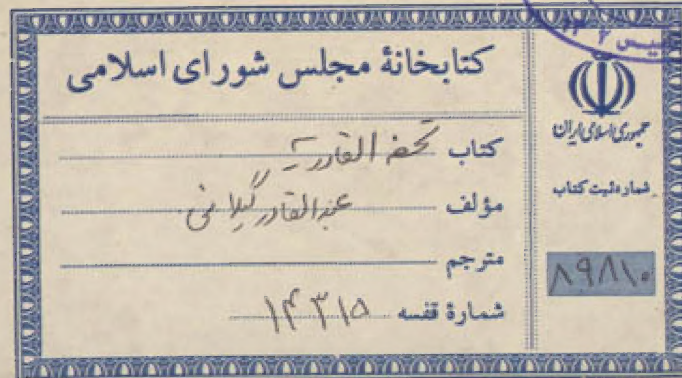 کتابخانهٔ مجلس شورای اسلامی
کتاب تحفة القادریة
مؤلف عبدالقادر گیلانی
مترجم
شمارهٔ قفسه ۱۴۳۱۵
جمهوری اسلامی ایران
شماره ثبت کتاب
۸۹۸۱۰